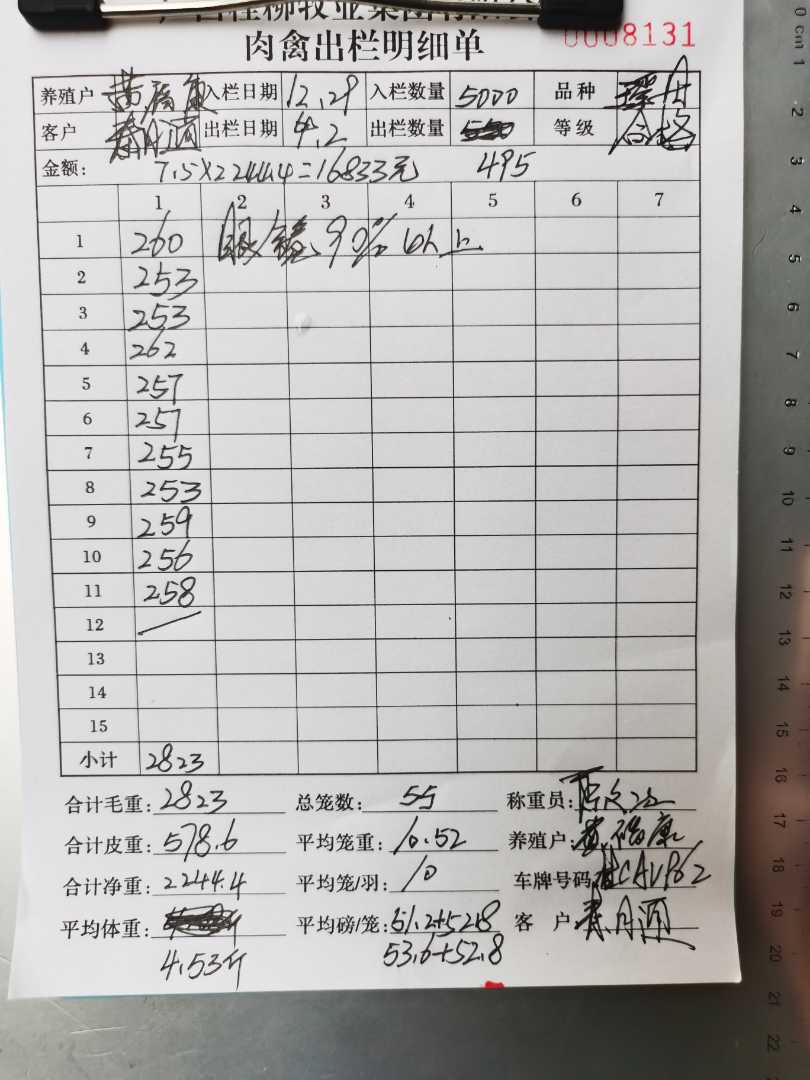 肉禽出栏明细单 0008131
养殖户 黄 入栏日期 12.29 入栏数量 5000 品种
客户 出栏日期 4.2 出栏数量 等级 合格
金额: 7.5×2244.4=16833元 495
1 2 3 4 5 6 7
1 260 眼镜90%以上
2 253
3 253
4 262
5 257
6 257
7 255
8 253
9 259
10 256
11 258
12
13
14
15
小计 2823
合计毛重: 2823 总笼数: 55 称重员:
合计皮重: 578.6 平均笼重: 10.52 养殖户: 黄 康
合计净重: 2244.4 平均笼/羽: 10 车牌号码
平均体重: 平均磅/笼: 51.2+52.8 客户
4.53斤 53.6+52.8
0 Cm 1
2
3
4
5
6
7
8
9
10
11
12
13
14
15
16
17
18
19
20
21
22